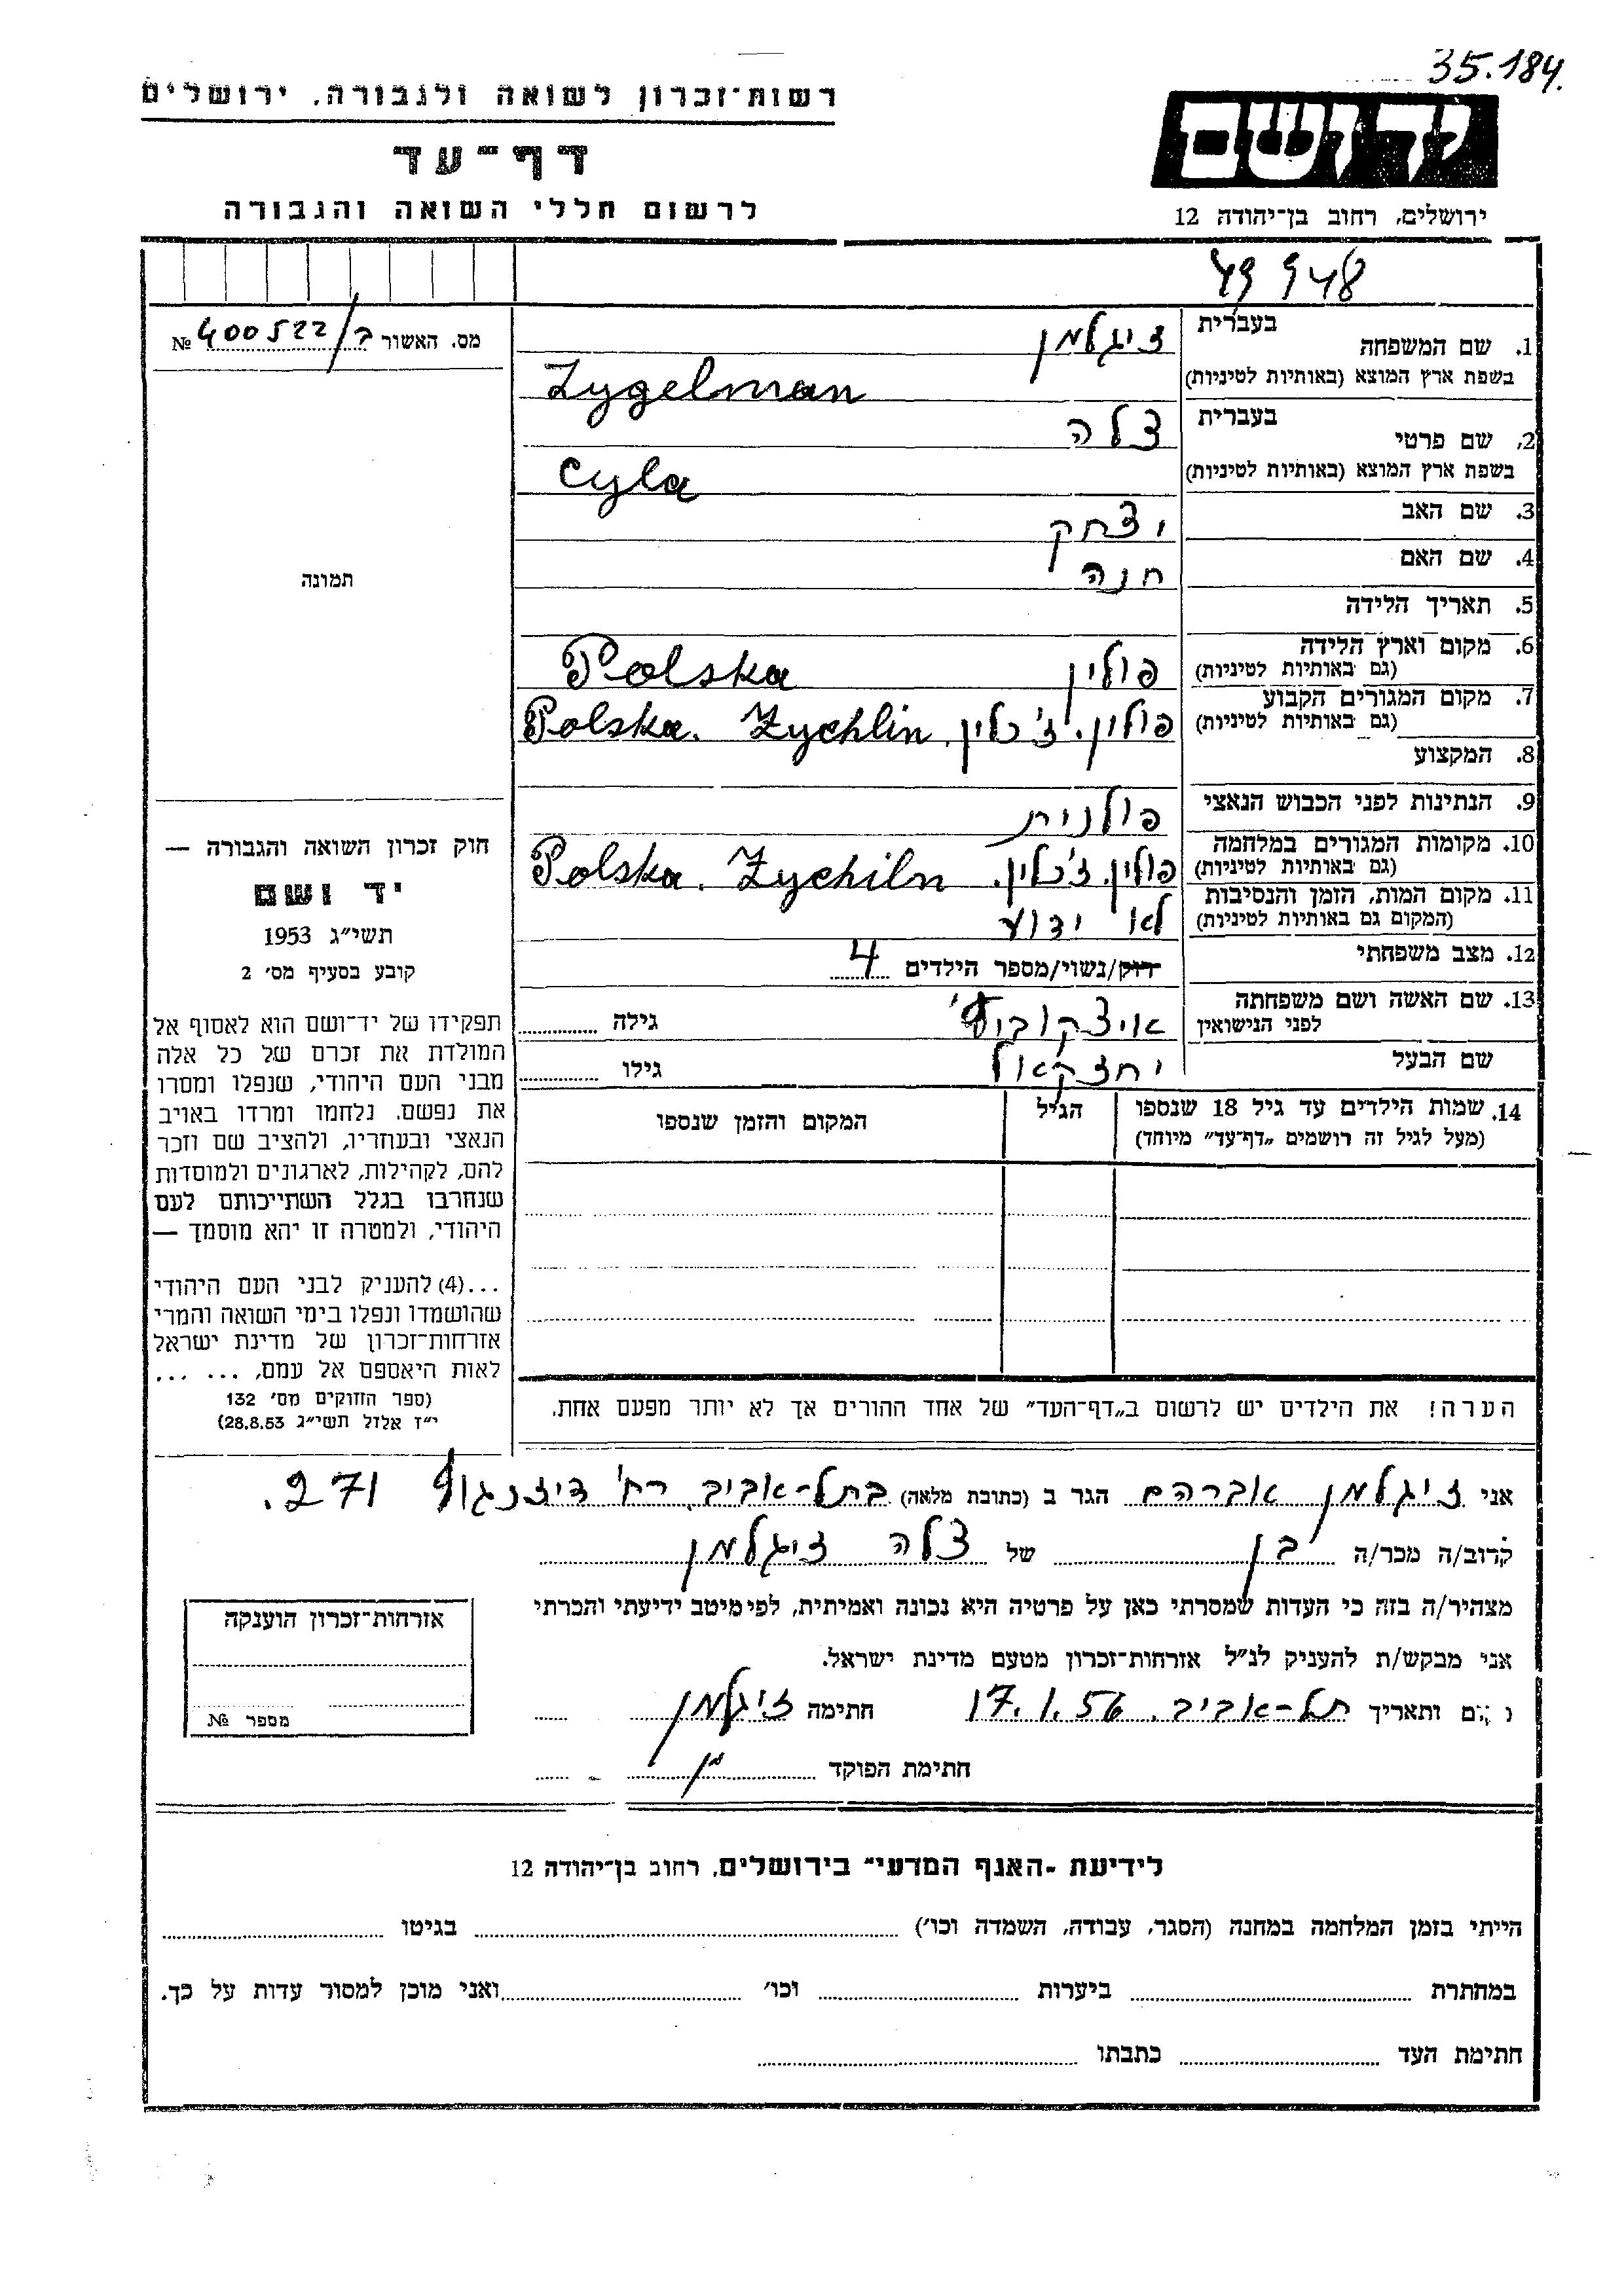 35.184.
רשות־זכרון לשואה ולגבורה, ירושלים
יד ושם
דף־עד
לרשום חללי השואה והגבורה
ירושלים, רחוב בן־יהודה 12
מס. האשור 400522/ד №
1. שם המשפחה בעברית זיגלמן
בשפת ארץ המוצא (באותיות לטיניות) Zygelman
2. שם פרטי בעברית צלה
בשפת ארץ המוצא (באותיות לטיניות) Cyla
3. שם האב יצחק
4. שם האם חנה
5. תאריך הלידה
6. מקום וארץ הלידה (גם באותיות לטיניות) פולין Polska
7. מקום המגורים הקבוע (גם באותיות לטיניות) פולין. ז'כלין. Polska. Zychlin
8. המקצוע
9. הנתינות לפני הכבוש הנאצי פולנית
10. מקומות המגורים במלחמה (גם באותיות לטיניות) פולין. ז'כלין. Polska. Zychiln
11. מקום המות, הזמן והנסיבות (המקום גם באותיות לטיניות) לא ידוע
12. מצב משפחתי רוק/נשוי/מספר הילדים 4
13. שם האשה ושם משפחתה לפני הנישואין גילה
שם הבעל יחזקאול גילו
14. שמות הילדים עד גיל 18 שנספו הגיל המקום והזמן שנספו
(מעל לגיל זה רושמים „דף־עד" מיוחד)
הערה! את הילדים יש לרשום ב„דף־העד" של אחד ההורים אך לא יותר מפעם אחת.
תמונה
חוק זכרון השואה והגבורה —
יד ושם
תשי״ג 1953
קובע בסעיף מס׳ 2
תפקידו של יד־ושם הוא לאסוף אל
המולדת את זכרם של כל אלה
מבני העם היהודי, שנפלו ומסרו
את נפשם, נלחמו ומרדו באויב
הנאצי ובעוזריו, ולהציב שם וזכר
להם, לקהילות, לארגונים ולמוסדות
שנחרבו בגלל השתייכותם לעם
היהודי, ולמטרה זו יהא מוסמך —
...(4) להעניק לבני העם היהודי
שהושמדו ונפלו בימי השואה והמרי
אזרחות־זכרון של מדינת ישראל
לאות היאספם אל עמם, ... ...
(ספר החוקים מס׳ 132
י״ז אלול תשי״ג 28.8.53)
אני זיגלמן אברהם הגר ב (כתובת מלאה) בתל-אביב רח' דיזנגוף 271.
קרוב/ה מכר/ה בן של צלה זיגלמן
מצהיר/ה בזה כי העדות שמסרתי כאן על פרטיה היא נכונה ואמיתית, לפי מיטב ידיעתי והכרתי
אני מבקש/ת להעניק לנ״ל אזרחות־זכרון מטעם מדינת ישראל.
ותאריך תל-אביב. 17.1.56 חתימה זיגלמן
חתימת הפוקד
אזרחות־זכרון הוענקה
מספר №
לידיעת „האגף המדעי" בירושלים, רחוב בן־יהודה 12
הייתי בזמן המלחמה במחנה (הסגר, עבודה, השמדה וכו׳) בגיטו
במחתרת ביערות וכו׳ ואני מוכן למסור עדות על כך.
חתימת העד כתבתו